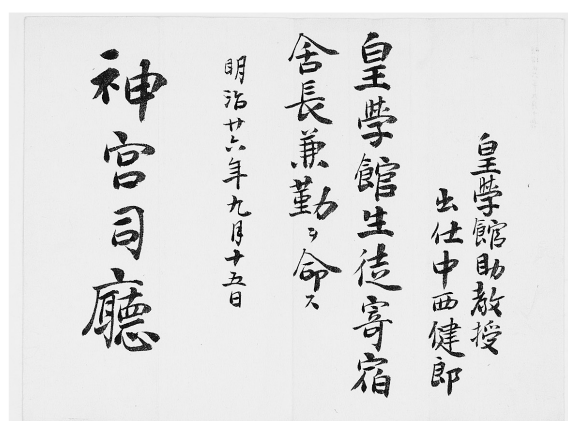 皇學館助教授
出仕中西健郎
皇學館生徒寄宿
舍長兼勤ヲ命ス
明治廿六年九月十五日
神宮司廳